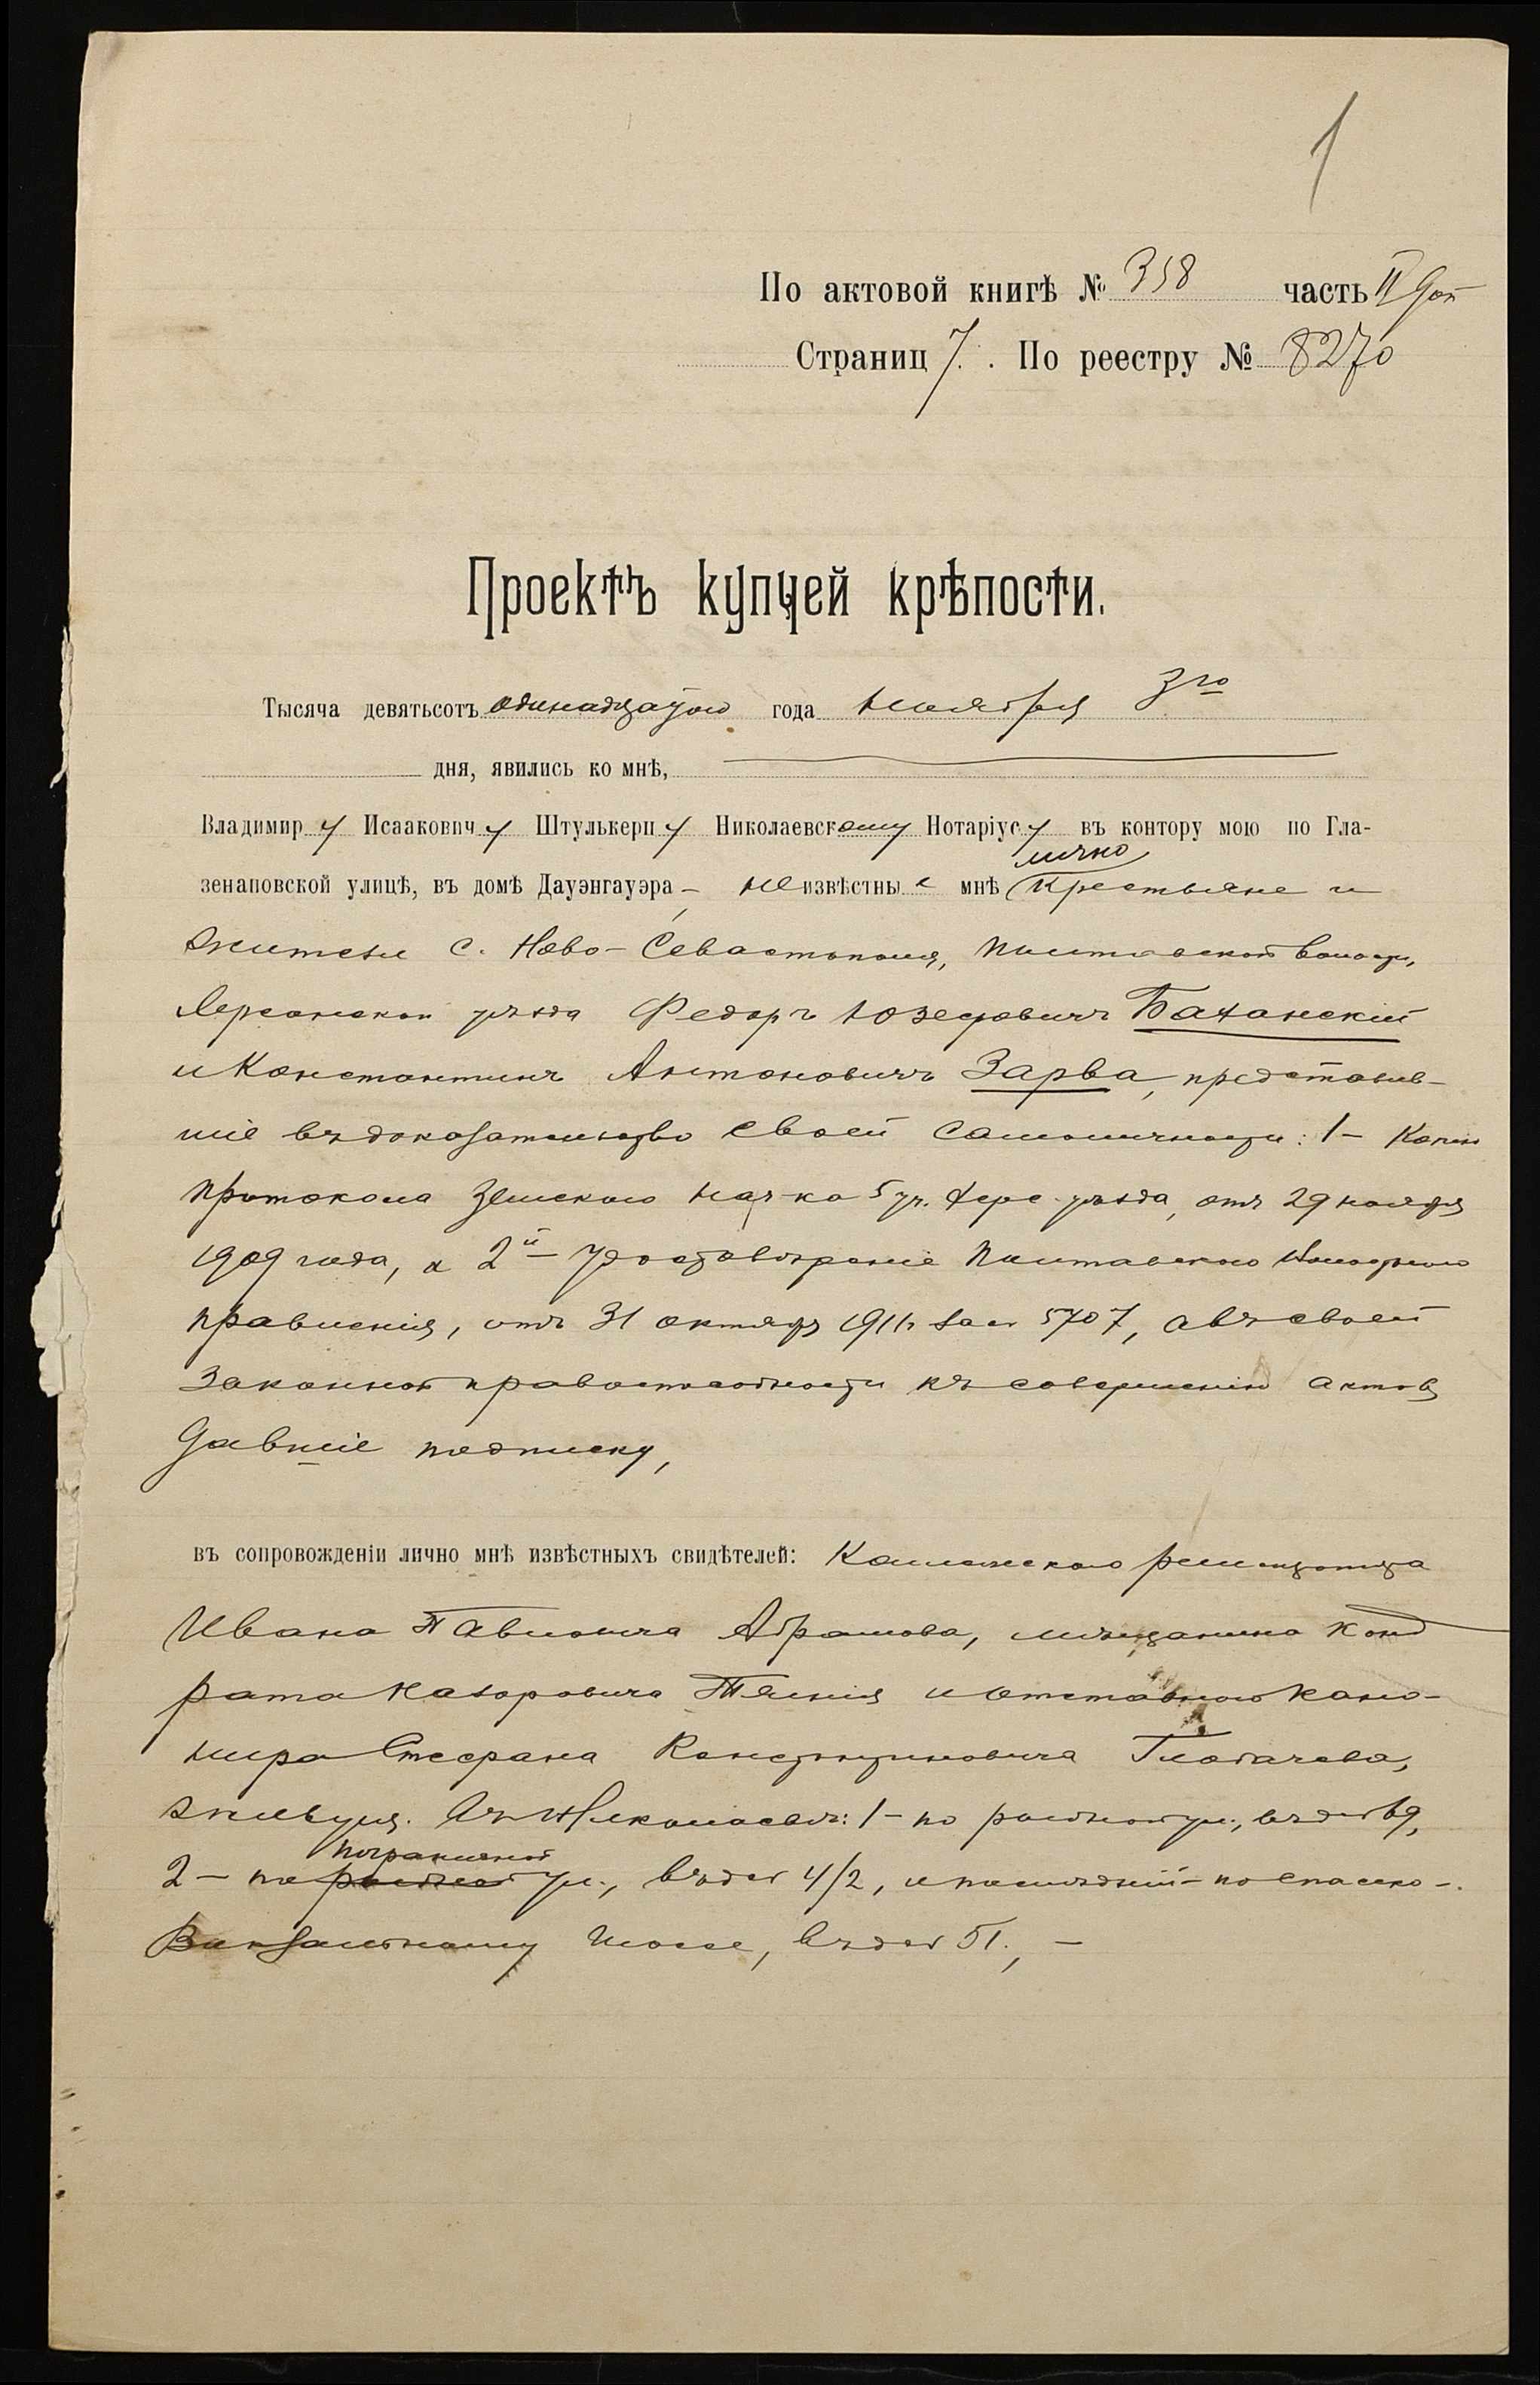 1
По актовой книгѣ № 358 часть II доп
Страниц 7. По реестру № 8270
Проектъ купчей крѣпости.
Тысяча девятьсотъ одинадцатого года ноября 3го
дня, явились ко мнѣ,
Владимиру Исааковичу Штулькерцу Николаевскому Нотаріусу въ контору мою по Гла-
зенаповской улицѣ, въ домѣ Дауэнгауэра – неизвѣстные мнѣ лично крестьяне и
жители с. Ново-Севастополя, Полтавской волости,
Херсонскаго уѣзда Федоръ Юзефовичъ Баханскій
и Константинъ Антоновичъ Зарва, представив-
шіе въ доказательство своей самоличности: 1– копію
протокола Земскаго Нач-ка 5 уч. Херс. уѣзда, отъ 29 ноября
1909 года, а 2й – удостовѣреніе Полтавскаго Волостного
правленія, отъ 31 октября 1911 за № 5707, а въ своей
законной правоспособности къ совершенію актовъ
давшіе подписку,
въ сопровожденіи лично мнѣ извѣстныхъ свидѣтелей:
Ивана Павловича Абрамова, мѣщанина Конд
рата Назаровича и отставного кано-
нира Стефана Константиновича Глобачева,
живущ. въ Николаевѣ: 1– по ул., въ д № 69,
2– по пограничной рыбной ул., въ д № 4/2, и послѣдній – по Спасско-
Вокзальному шоссе, въ д № 51., –